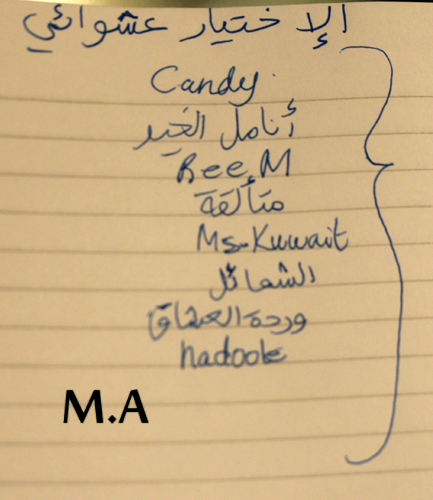 الإختيار عشوائي
Candy.
أنامل الخير
ReeM
متألقة
Ms-Kuwait
الشمائل
وردة العشاق
nadook
M.A